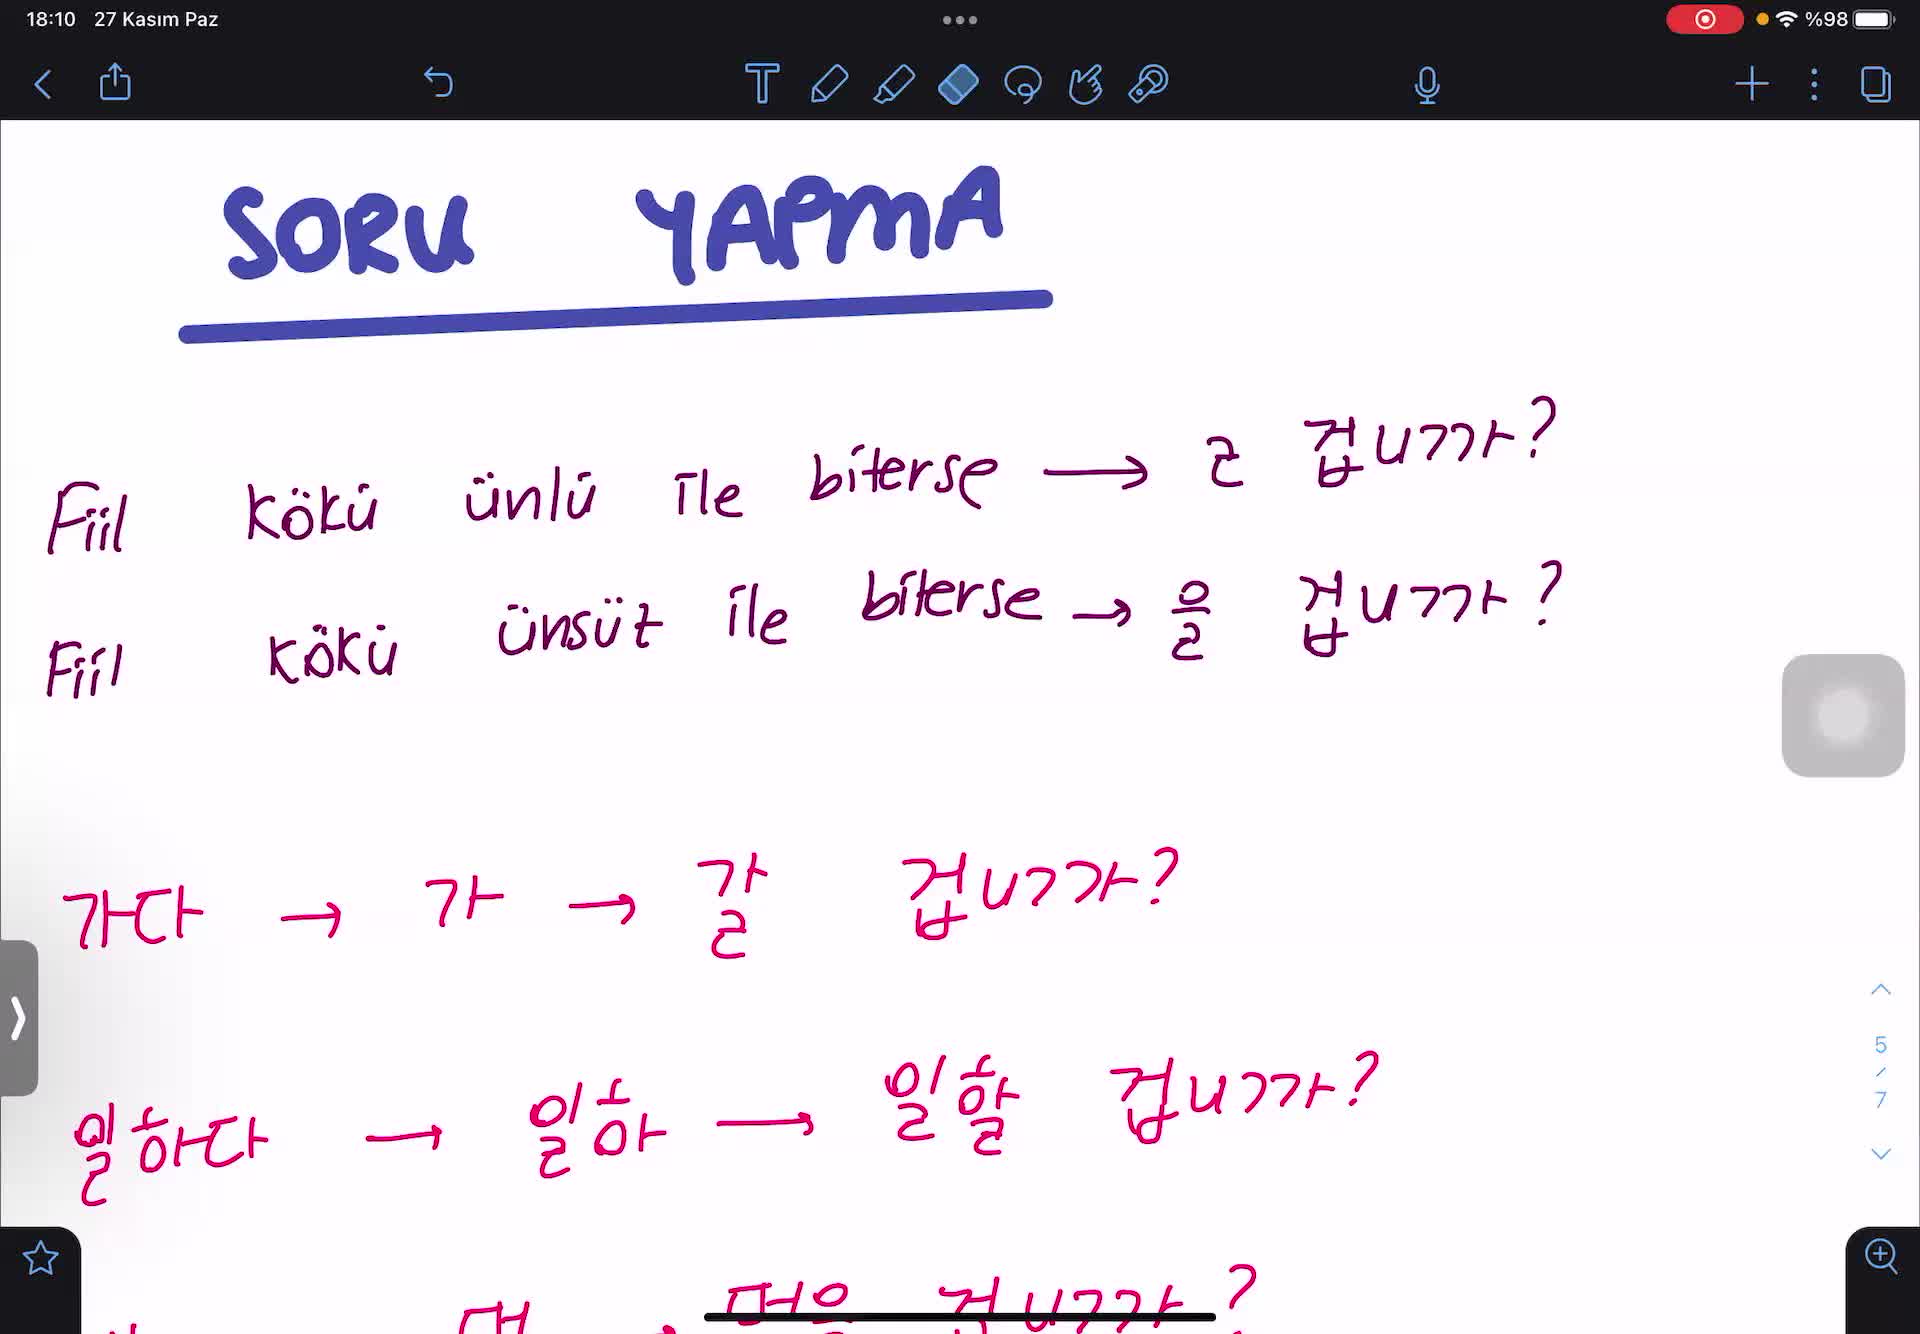 18:10 27 Kasım Paz %98
SORU YAPMA
Fiil kökü ünlü ile biterse → ㄹ 겁니까?
Fiil kökü ünsüz ile biterse → 을 겁니까?
가다 → 가 → 갈 겁니까?
일하다 → 일하 → 일할 겁니까?
겁니까?
5
/
7